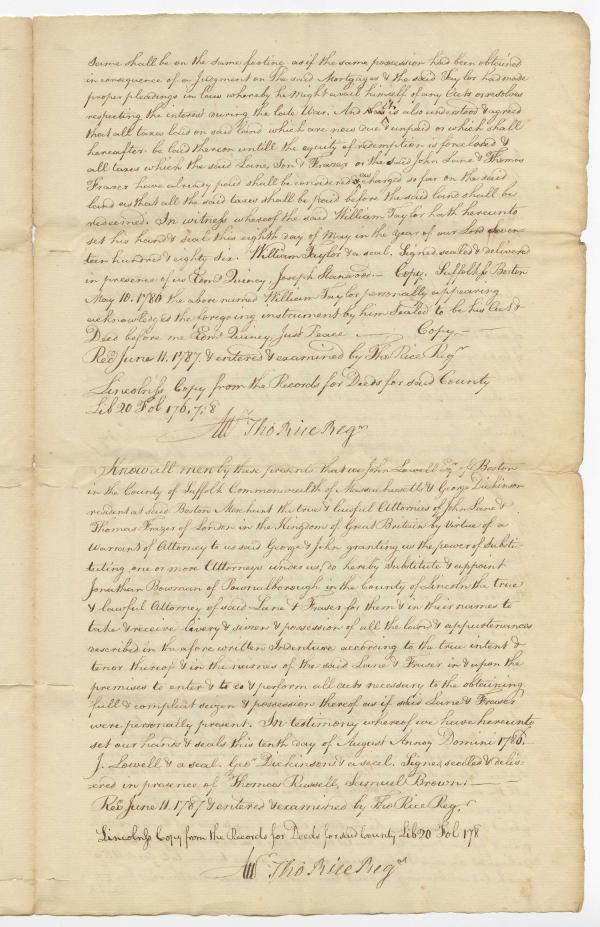 same shall be on the same footing as if the same possession had been obtained
in consequence of a Judgment on the said Mortgages & the said Taylor had made
proper pleadings in law whereby he might avail himself of any Acts or resolves
respecting the interest during the late War. And it is also understood & agreed
that all taxes laid on said land which are now due & unpaid or which shall
hereafter be laid thereon untill the equity of redemption is foreclosed &
all taxes which the said Lane, Son & Frazer or the said John Lane & Thomas
Frazer have already paid shall be considered as charges so far on the said
land as that all the said taxes shall be paid before the said land shall be
redeemed. In witness whereof the said William Taylor hath hereunto
set his hand & seal this eighth day of May in the year of our Lord seven-
teen hundred & eighty six. William Taylor & a seal. Signed sealed & delivered
in presence of us Edmd Quincy, Joseph Stanard:- Copy. Suffolk Ss Boston
May 10. 1786 the above named William Taylor personally appearing
acknowledged the foregoing instrument by him sealed to be his Act &
Deed before me Edmd Quincy, Just Peace Copy-
Recd June 11. 1787. & entered & examined by Thos Rice Regr
Lincoln Ss Copy from the Records for Deeds for said County
Lib 20 Fol 176, 7, & 8
Attr Tho Rice Regr
Know all men by these presents that we John Lowell Esqr of Boston
in the County of Suffolk Commonwealth of Massachusetts & George Dickinson
resident at said Boston Merchant the true & lawful Attornies of John Lane &
Thomas Frazer of London in the Kingdom of Great Britain by Virtue of a
warrant of Attorney to us said George & John granting us the power of Substi-
tuting one or more Attorneys under us, do hereby Substitute & appoint
Jonathan Bowman of Pownalborough in the County of Lincoln the true
& lawful Attorney of said Lane & Fraser for them & in their names to
take & receive livery & seizen & possession of all the land & appurtenances
described in the afore written Indenture according to the true intent &
tenor thereof & in the names of the said Lane & Fraser in & upon the
premises to enter & to do & perform all acts necessary to the obtaining
full & compleat seizen & possession thereof as if said Lane & Fraser
were personally present. In testimony whereof we have hereunto
set our hands & seals this tenth day of August Annoy Domini 1786.
J. Lowell & a seal. Geo Dickinson & a seal. Signed sealed & deliv-
ered in presence of Thomas Russell, Samuel Brown.
Recd June 11. 1787 & entered & examined by Tho Rice Regr
Lincoln Ss Copy from the Records for Deeds for said County Lib 20 Fol 178
Attr Tho Rice Regr